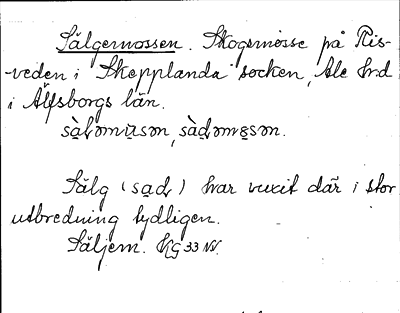 Sälgemossen. Skogsmosse på Ris-
-veden i Skepplanda socken, Ale hrd
i Älfsborgs län.
Sälg ( ) har vuxit där i stor
utbredning tydligen.
Säljem. KG 33 NV.